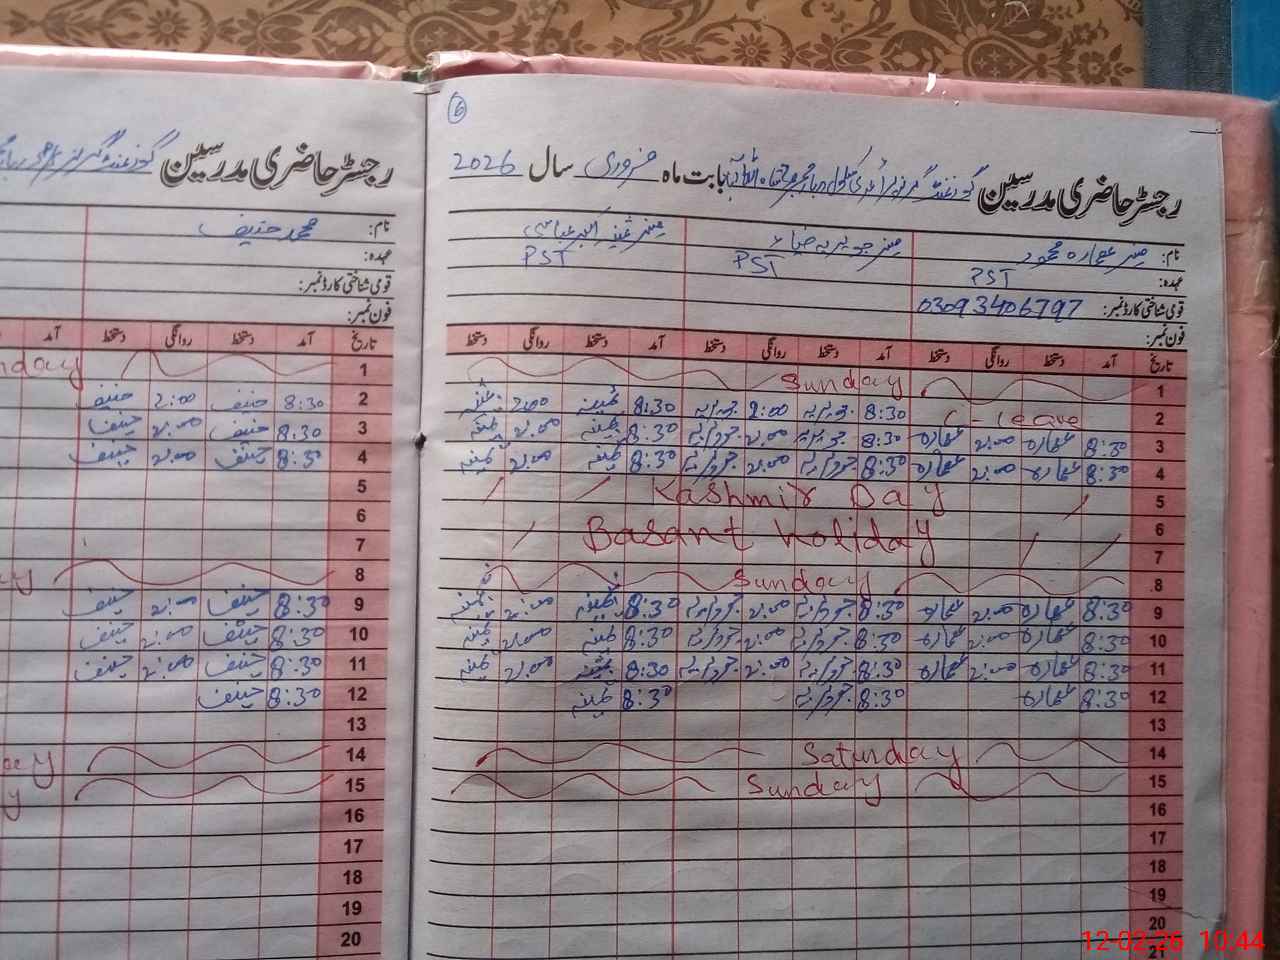 6
رجسٹر حاضری مدرسین گورنمنٹ گرلز پرائمری سکول بابت ماہ فروری سال 2026
نام: مسز عمارہ محمود مسز جویریہ ضیاء مسز ثمینہ اکبر عباسی
عہدہ: PST PST PST
قومی شناختی کارڈ نمبر: 03093406797
فون نمبر:
تاریخ آمد دستخط روانگی دستخط آمد دستخط روانگی دستخط آمد دستخط روانگی دستخط
1 Sunday
2 C-leave 8:30 جویریہ 2:00 جویریہ 8:30 ثمینہ 2:00 ثمینہ
3 8:30 عمارہ 2:00 عمارہ 8:30 جویریہ 2:00 جویریہ 8:30 ثمینہ 2:00 ثمینہ
4 8:30 عمارہ 2:00 عمارہ 8:30 جویریہ 2:00 جویریہ 8:30 ثمینہ 2:00 ثمینہ
5 Kashmir Day
6 Basant holiday
7
8 Sunday
9 8:30 عمارہ 2:00 عمارہ 8:30 جویریہ 2:00 جویریہ 8:30 ثمینہ 2:00 ثمینہ
10 8:30 عمارہ 2:00 عمارہ 8:30 جویریہ 2:00 جویریہ 8:30 ثمینہ 2:00 ثمینہ
11 8:30 عمارہ 2:00 عمارہ 8:30 جویریہ 2:00 جویریہ 8:30 ثمینہ 2:00 ثمینہ
12 8:30 عمارہ 8:30 جویریہ 8:30 ثمینہ
13
14 Saturday
15 Sunday
16
17
18
19
20
21
رجسٹر حاضری مدرسین گورنمنٹ گرلز
نام: محمد حنیف
عہدہ:
قومی شناختی کارڈ نمبر:
فون نمبر:
تاریخ آمد دستخط روانگی دستخط آمد
1 nday
2 8:30 حنیف 2:00 حنیف
3 8:30 حنیف 2:00 حنیف
4 8:30 حنیف 2:00 حنیف
5
6
7
8 ay
9 8:30 حنیف 2:00 حنیف
10 8:30 حنیف 2:00 حنیف
11 8:30 حنیف 2:00 حنیف
12 8:30 حنیف
13
14 ay
15 y
16
17
18
19
20
12-02-26 10:44